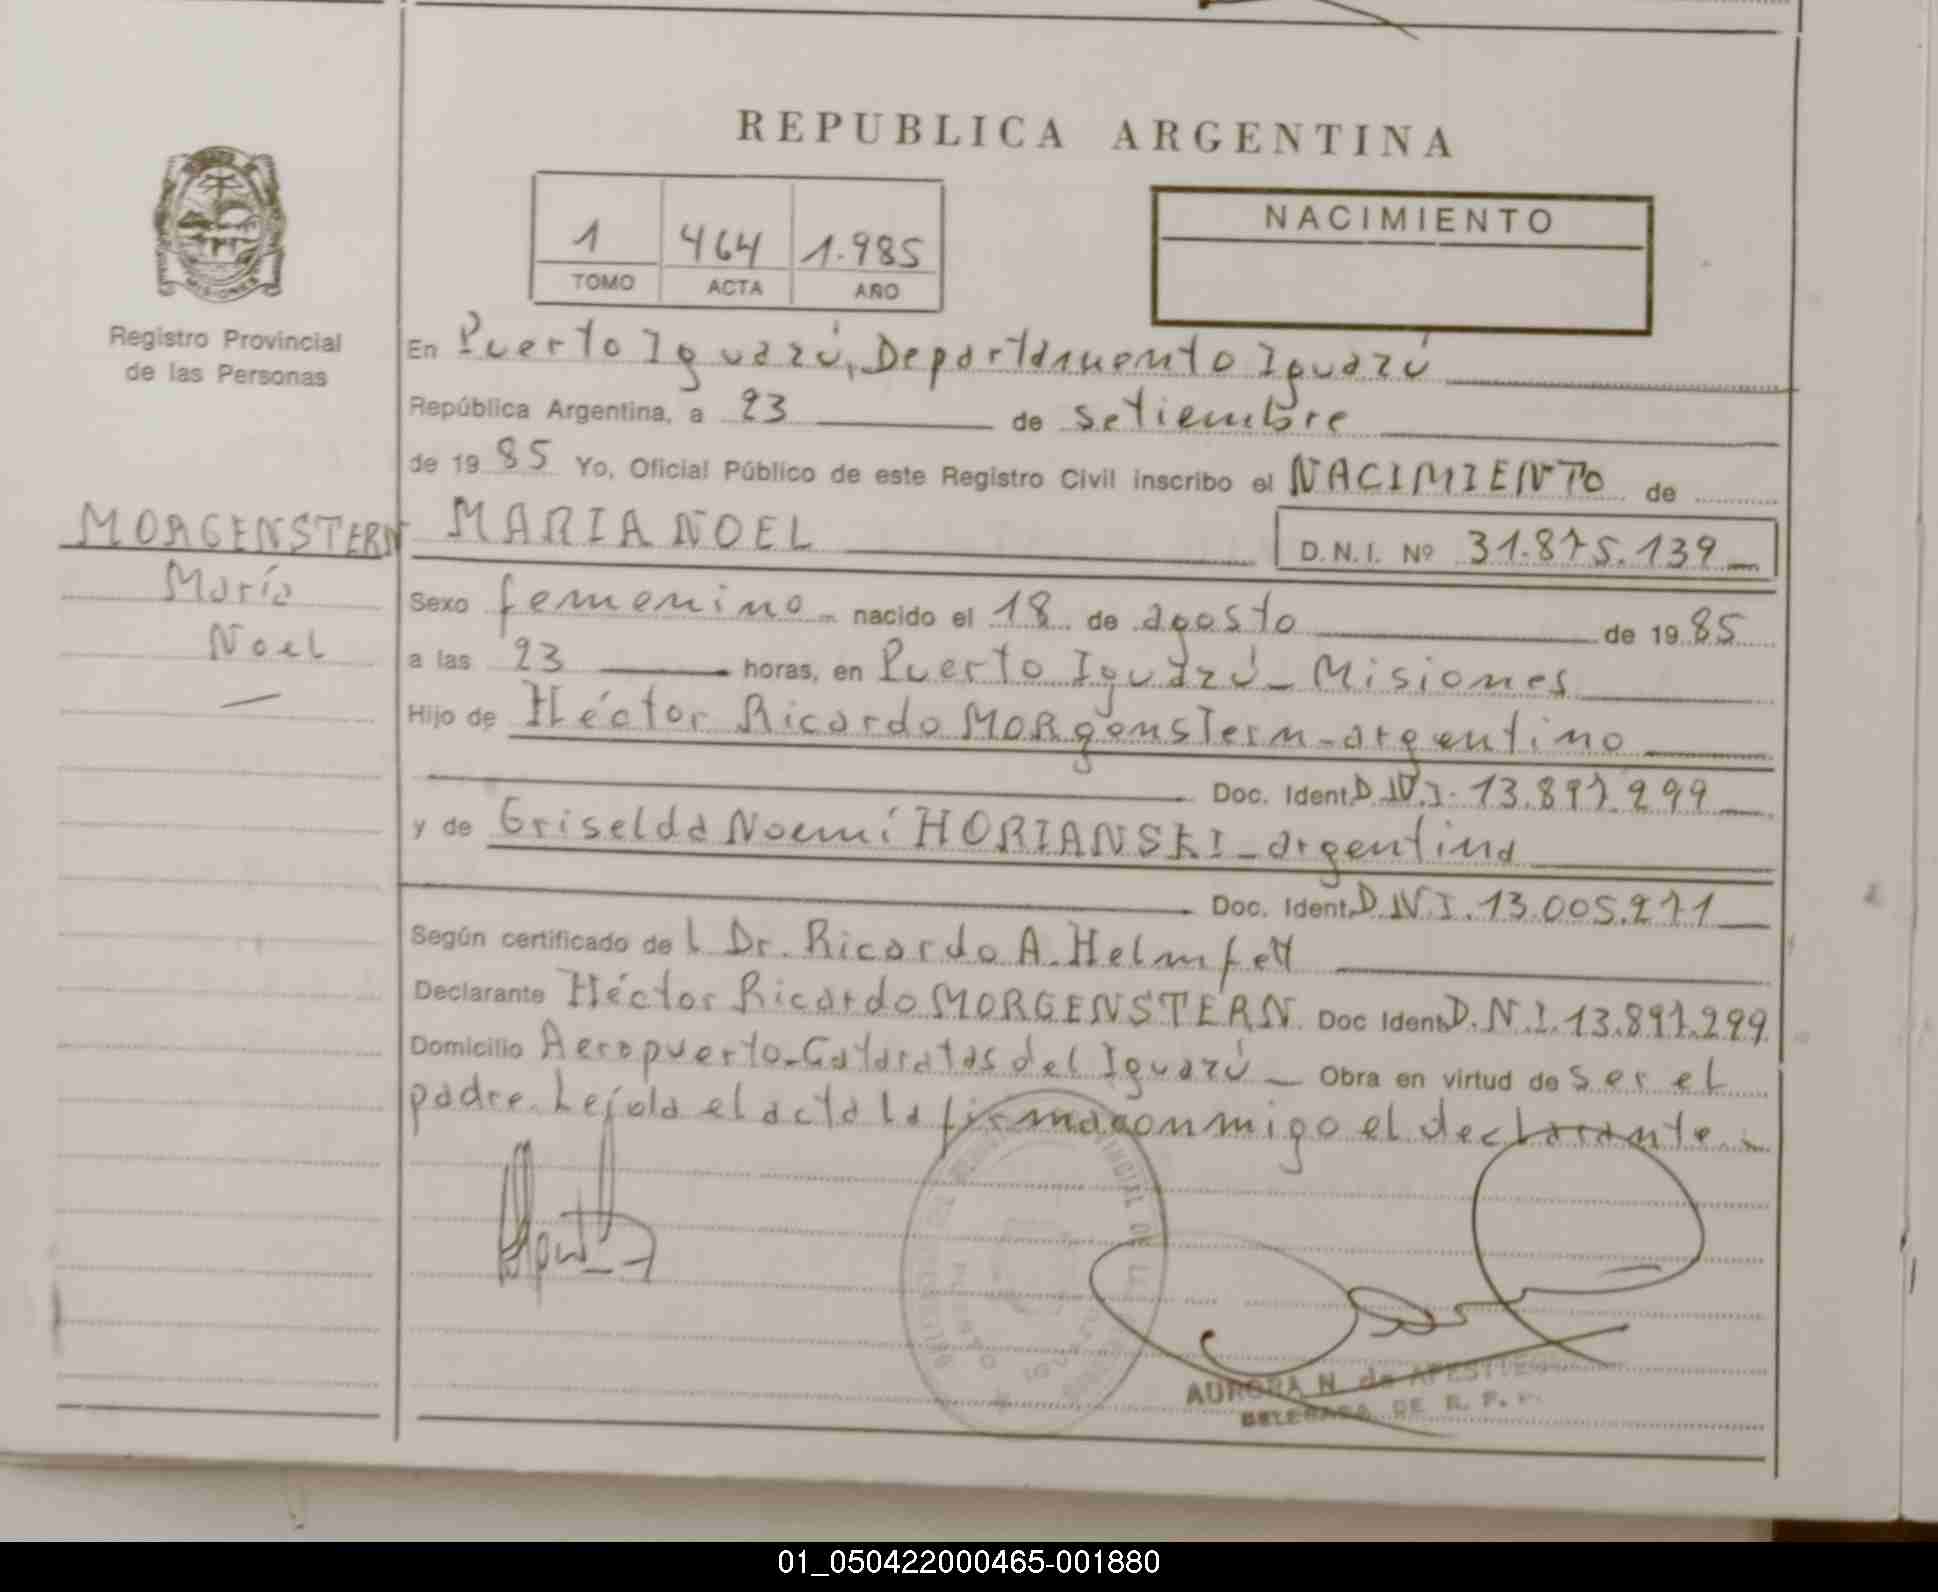 REPUBLICA ARGENTINA
1 464 1.985
TOMO ACTA AÑO
NACIMIENTO
MISIONES
Registro Provincial
de las Personas
MORGENSTERN
María
Noel
En Puerto Iguazú, Departamento Iguazú
República Argentina, a 23 de setiembre
de 1985 Yo, Oficial Público de este Registro Civil inscribo el NACIMIENTO de
MARIA NOEL D.N.I. Nº 31.875.139
Sexo femenino nacido el 18 de agosto de 1985
a las 23 horas, en Puerto Iguazú - Misiones
Hijo de Héctor Ricardo MORgensTern - argentino
Doc. Ident. D.N.I. 13.897.299
y de Griselda Noemí HORIANSKI - argentina
Doc. Ident. D.N.I. 13.005.271
Según certificado del Dr. Ricardo A. Helmfelt
Declarante Héctor Ricardo MORGENSTERN. Doc Ident. D.N.I. 13.897.299
Domicilio Aeropuerto - Cataratas del Iguazú - Obra en virtud de ser el
padre. Leída el acta la firma conmigo el declarante. -
AURORA N. de
DELEGADA DE R. P. P.
01_050422000465-001880